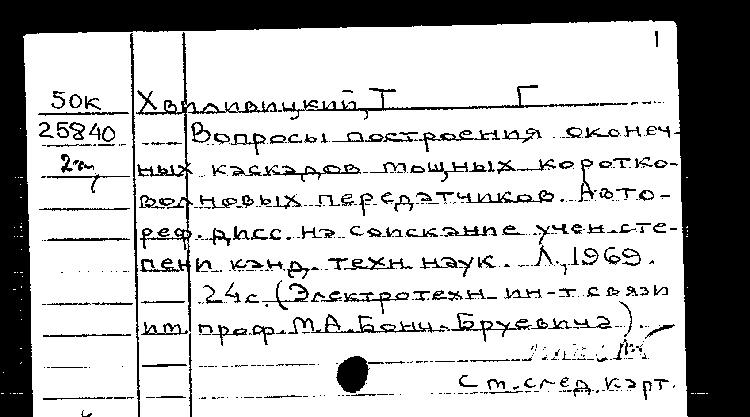 1
50к Хвиливицкий, Т Г
25840 Вопросы построения оконеч-
2 ных каскадов мощных коротко-
волновых передатчиков. Авто-
реф. дисс. на соискание учен. сте-
пени канд. техн. наук. Л., 1969.
24 с. (Электротехн. ин-т связи
им. проф. М.А. Бонч-Бруевича).
См. след. карт.